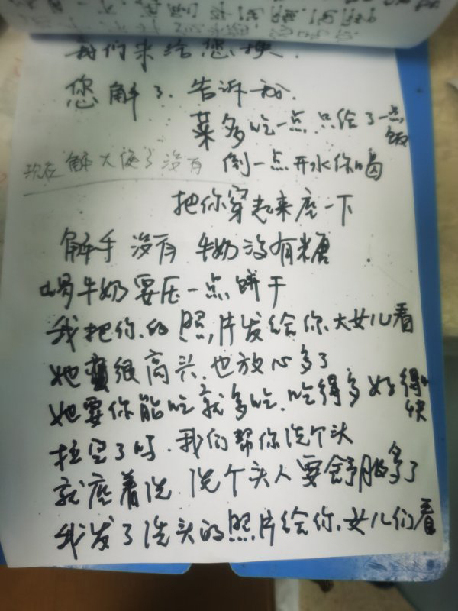 我们来给您换.
您解了.告诉一下.
菜多吃一点.只给了一点饭
现在解大便了没有 倒一点开水你喝
把你穿起来座一下
解手没有 牛奶没有糖
喝牛奶要压一点饼干
我把你的照片发给你大女儿看
她很高头.也放心多了
她要你能吃就多吃.吃得多好得快
拉完了吗.我们帮你洗个头
就座着洗 洗个头人要舒服多了
我发了洗头的照片给你女儿们看